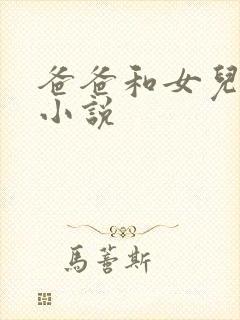 爸爸和女兒
小說
馬薔斯